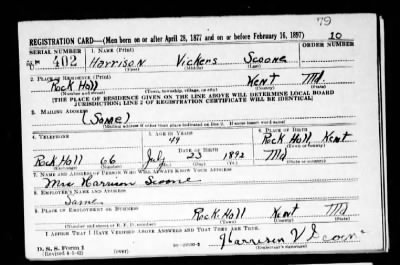 79
REGISTRATION CARD—(Men born on or after April 28, 1877 and on or before February 16, 1897) 10
SERIAL NUMBER 1. NAME (Print)
402 Harrison Vickers Scoone
(First) (Middle) (Last)
2. PLACE OF RESIDENCE (Print)
Rock Hall Kent Md.
(Number and street) (Town, township, village, or city) (County) (State)
[THE PLACE OF RESIDENCE GIVEN ON THE LINE ABOVE WILL DETERMINE LOCAL BOARD
JURISDICTION; LINE 2 OF REGISTRATION CERTIFICATE WILL BE IDENTICAL]
3. MAILING ADDRESS
(Same)
[Mailing address if other than place indicated on line 2. If same insert word same]
4. TELEPHONE 5. AGE IN YEARS 6. PLACE OF BIRTH
49 Rock Hall, Kent
DATE OF BIRTH (Town or county)
Rock Hall 66 July 23 1892 Md
(Exchange) (Number) (Mo.) (Day) (Yr.) (State or country)
7. NAME AND ADDRESS OF PERSON WHO WILL ALWAYS KNOW YOUR ADDRESS
Mrs Harrison Scoone
8. EMPLOYER'S NAME AND ADDRESS
Same
9. PLACE OF EMPLOYMENT OR BUSINESS
Rock Hall Kent Md
(Number and street or R. F. D. number) (Town) (County) (State)
I AFFIRM THAT I HAVE VERIFIED ABOVE ANSWERS AND THAT THEY ARE TRUE.
D. S. S. Form 1
(Revised 4-1-42) (over) Harrison V Scoone
(Registrant's signature)